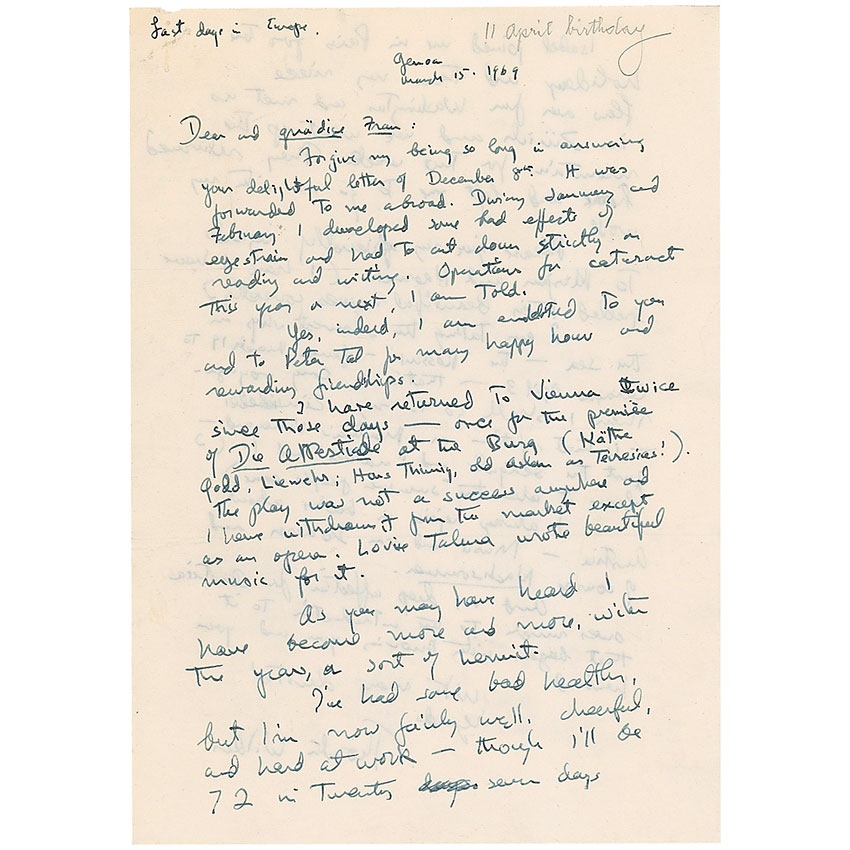 Last days in Europe.
11 April birthday
Genoa
March 15. 1969
Dear and gnädige Frau:
Forgive my being so long in answering
your delightful letter of December. It was
forwarded To me abroad. During January and
February I developed some bad effects of
eyestrain and had To cut down strictly on
reading and writing. Operations for cataract
This year or next, I am Told.
Yes, indeed, I am indebted To you
and to Peter Tal for many happy hour and
rewarding friendships.
I have returned To Vienna Twice
since Those days — once for the première
of Die Alkestiade at the Burg (Käthe
Gold, Liewehr; Hans Thimig, old Aslan as Teiresias!).
The play was not a success anywhere and
I have withdrawn it from the market except
as an opera. Louise Talma wrote beautiful
music for it.
As you may have heard I
have become more and more, with
The years, a sort of hermit.
I've had some bad health,
but I'm now fairly well, cheerful,
and hard at work — though I'll be
72 in Twenty seven days